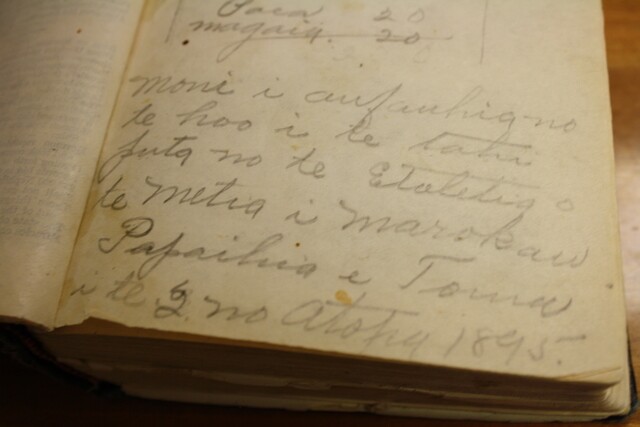 Paea 20
magaia. 20
moni i aufauhia no
te hoo i te tahi
futa no te Etaletia o
te Metia i Marokau
Papaihia e Torua
i te 2 no Atopa 1895.